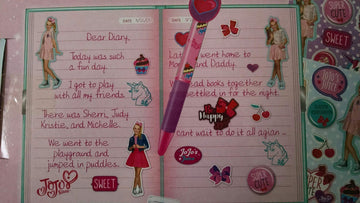 DATE
Dear Diary,
Today was such
a fun day.
I got to play
with all my friends.
There was Sherri, Judy
Kristie, and Michelle.
We went to the
playground and
jumped in puddles.
JoJo's
SWEET
DATE
Lat went home to
M and Daddy.
ead books together
settled in for the night.
cant wait to do it all agian ...
Happy
JoJo's
SUPER
CUTE
SUPER
CUTE
SWEET
JOJO'S
JUICE